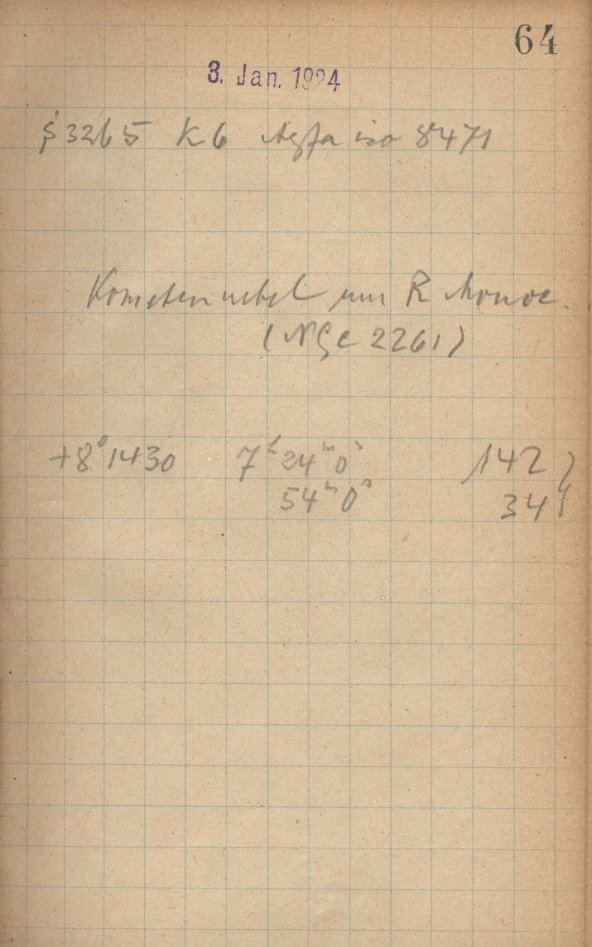 64
3. Jan. 1924
§ 3265 K6 Agfa iso 8471
Kometennebel um R Monoc.
(NGC 2261)
+8° 1430 7h 24m 0s 142 }
54m 0s 34 }